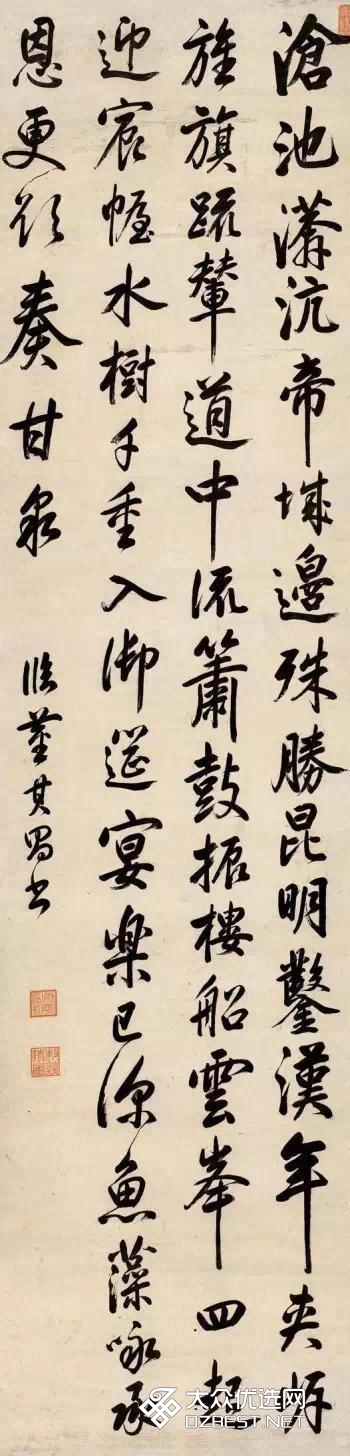 滄池漭沆帝城邊殊勝昆明鑿漢年夾岍
旌旗疏輦道中流簫鼓振樓船雲峯四起
迎宸幄水樹千重入御筵宴樂已深魚藻咏承
恩更欲奏甘泉
臨董其昌書
大众优选网
DZBEST.NET